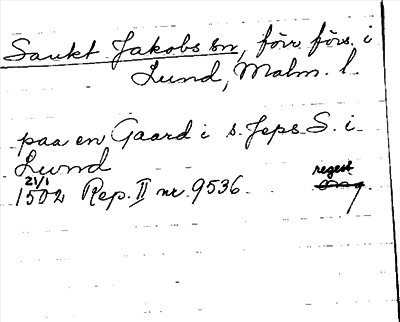 Sankt Jakobs sn, förr förs. i
Lund, Malm. l.
paa en Gaard i s. Jeps S. i
Lund
21/1
1502 Rep. II nr. 9536. regest